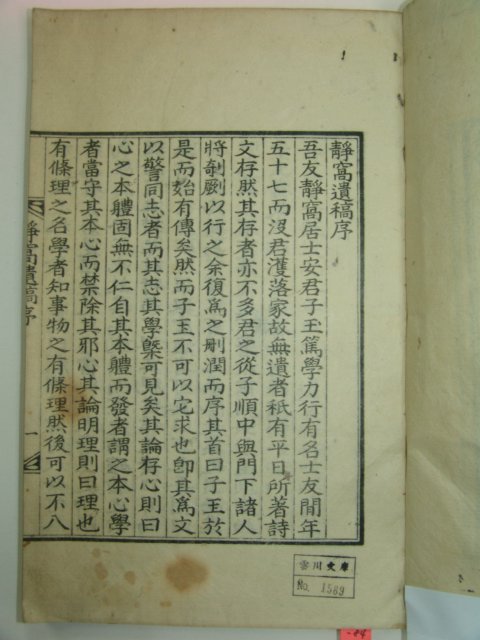 靜窩遺稿序
吾友靜窩居士安君子玉篤學力行有名士友間年
五十七而沒君濩落家故無遺者秖有平日所著詩
文存然其存者亦不多君之從子順中與門下諸人
將剞劂以行之余復爲之刪潤而序其首曰子玉於
是而始有傳矣然而子玉不可以宅求也卽其爲文
以警同志者而其志其學槩可見矣其論存心則曰
心之本體固無不仁自其本體而發者謂之本心學
者當守其本心而禁除其邪心其論明理則曰理也
有條理之名學者知事物之有條理然後可以不八
靜窩遺稿序
一
雲川文庫
No. 1589
-84